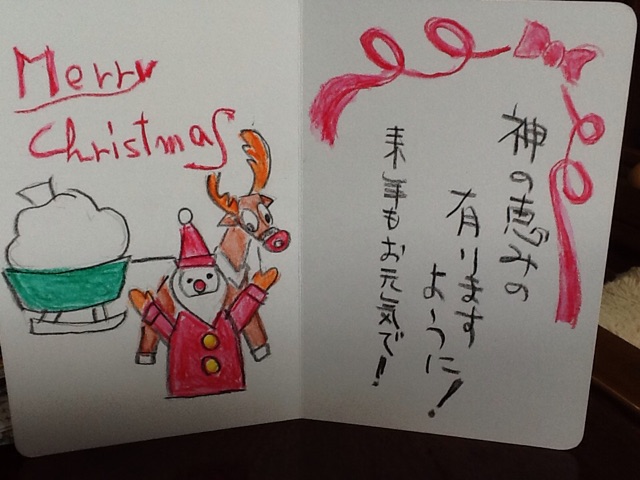 Merry
Christmas
神の恵みの
有ります
ように!
来年もお元気で!